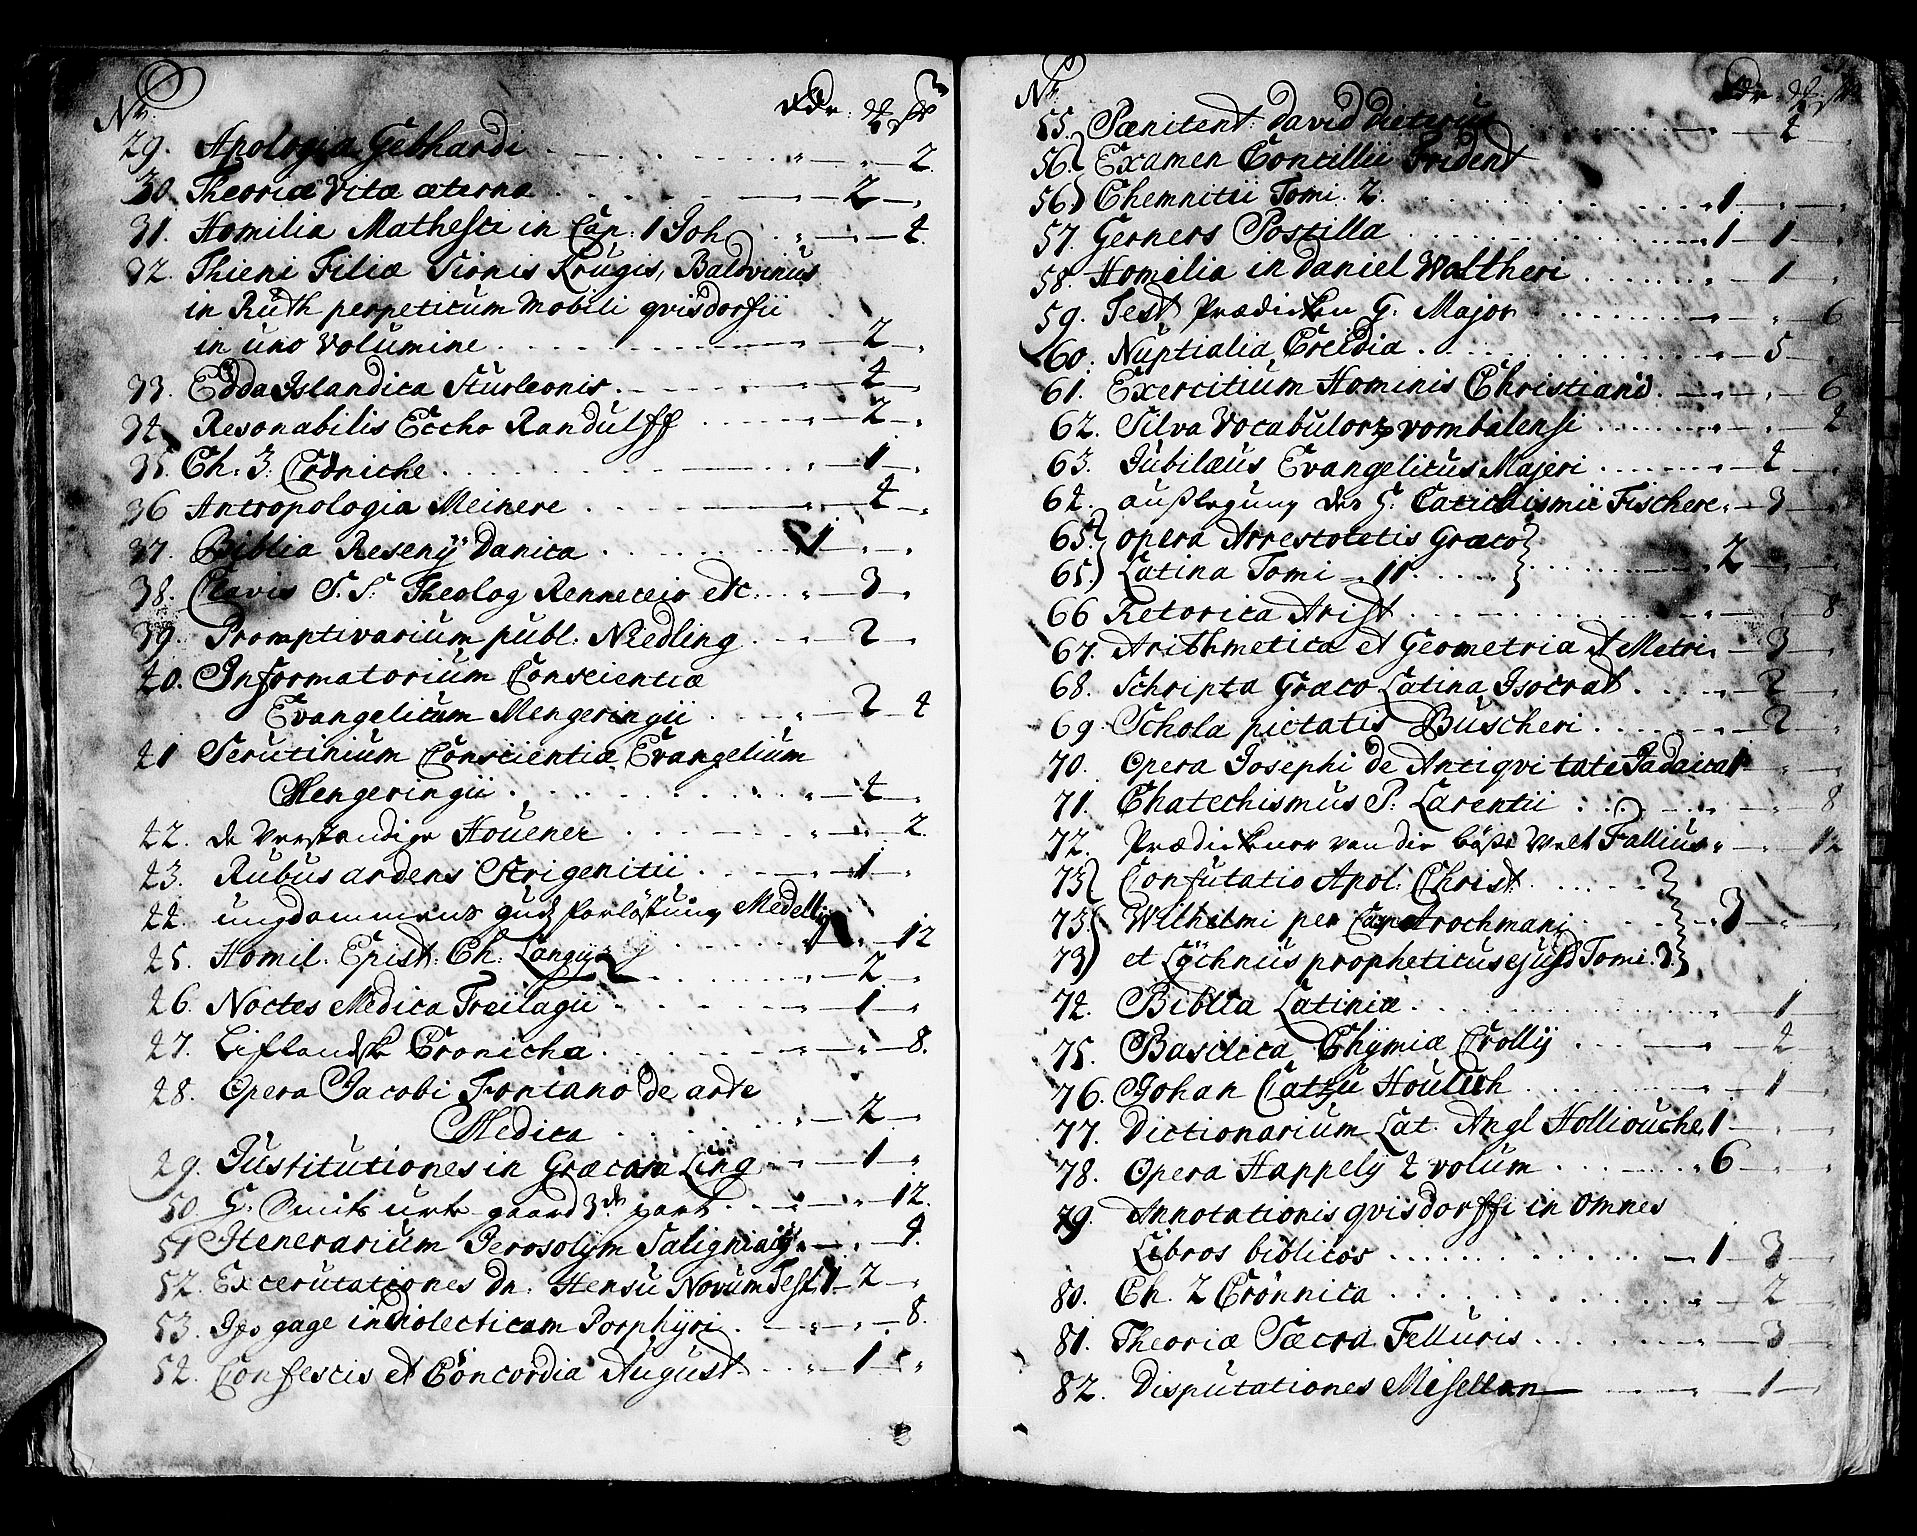 Nr. Rdr: ₰ sk
29. Apologia Gebhardi 2
30. Theoriæ vitæ æternæ 2
31. Homilia Mathesii in Cap: 1 Joh 4
32. Thieni Filiæ Sionis Krugis, Baldvinus
in Ruth perpeticum mobili qvisdorfii
in uno Volumine 2
33. Edda Islandica Sturleonis 4
34. Resonabilis Eccho Randulff 2
35. Ch: 3. Croniche 1
36 Antropologia Meinere 4
37. Biblia Reseny Danica 1
38. Clavis S. S. Theolog Renneceio etc. 3
39. Promptivarium publ: Niedling 2
40. Informatorium Conscientiæ
Evangelicum Mengeringii 2 4
41 Scrutinium Conscientiæ Evangelium
Mengeringii 4
42. de Verstandige Houener 2
43. Rubus ardens Strigenitii 1
44. ungdommens gudz 12
45. Homil. Epist: Ch: Langy 2
46. Noctes Medica Freitagii 1
47. Liflandsk Cronicha 8.
48. Opera Jacobi Fontano de arte
Medica 2
49. Justitutiones in Græcam Ling 1
50. H: Smits urte gaard 3de part 12.
51 Itenerarium Jerosolym Saligniacij 4.
52. Excerutationes Dn. Hensii Novum Test 1 2
53. gage in Diolecticam Porphyri 8.
54. Confescis et Concordia August 1
Nr.
55. Pænitent: David 4
56. Examen Concillii Trident
56) Chemnitii Tomi. 2. 1
57. Gerners Postilla 1 1
58. Homilia in Daniel Waltheri 1
59. Test Prædicken G. Major 6
60. Nuptialia Creidia 5
61. Exercitium Hominis Christiani 6
62. Silva Vocabulorz vombalensi 4
63. Jubilæus Evangelicus Majeri 4
64. außlegung des H. Catichismii Fischere 3
65. opera Arrestotetis Græco
65.) Latina Tomi 11 2
66 Retorica Arist 8
67. Arithmetica et Geometria et Metri 3
68. Schripta Græco Latina Isocrat 2
69. Schola pietatis Buscheri 2
70. Opera Josephi de Antiqvitate Judaica 1
71. Chatechismus P: Larentii 8
72. Prædickener van die böse Welt Fallius 12
73 Confutatio Apol: Christ
73. Wilhelmi per Trochmani 3
73) et Lÿchnus propheticus ejusd Tomi. 3.
74. Biblia Latiniæ 1
75. Basilica Chymiæ Crollij 4
76. Johan Catzii Houlich 1
77. Dictionarium Lat. Angl Holliouche 1
78. Opera Happelij 4 volum 6
79. Annotationis qvisdorffi in omnes
Libros biblicos 1 3
80. Ch. 2 Crönnica 2
81. Theoriæ Sacra Telluris 3
82. Disputationes Misellan 1